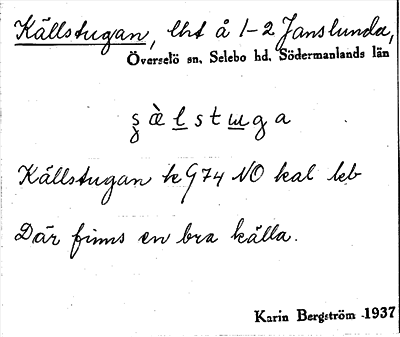 Källstugan, lht å 1-2 Janslunda,
Överselö sn, Selebo hd, Södermanlands län
Källstugan k G74 NO kal leb
Där finns en bra källa.
Karin Bergström 1937